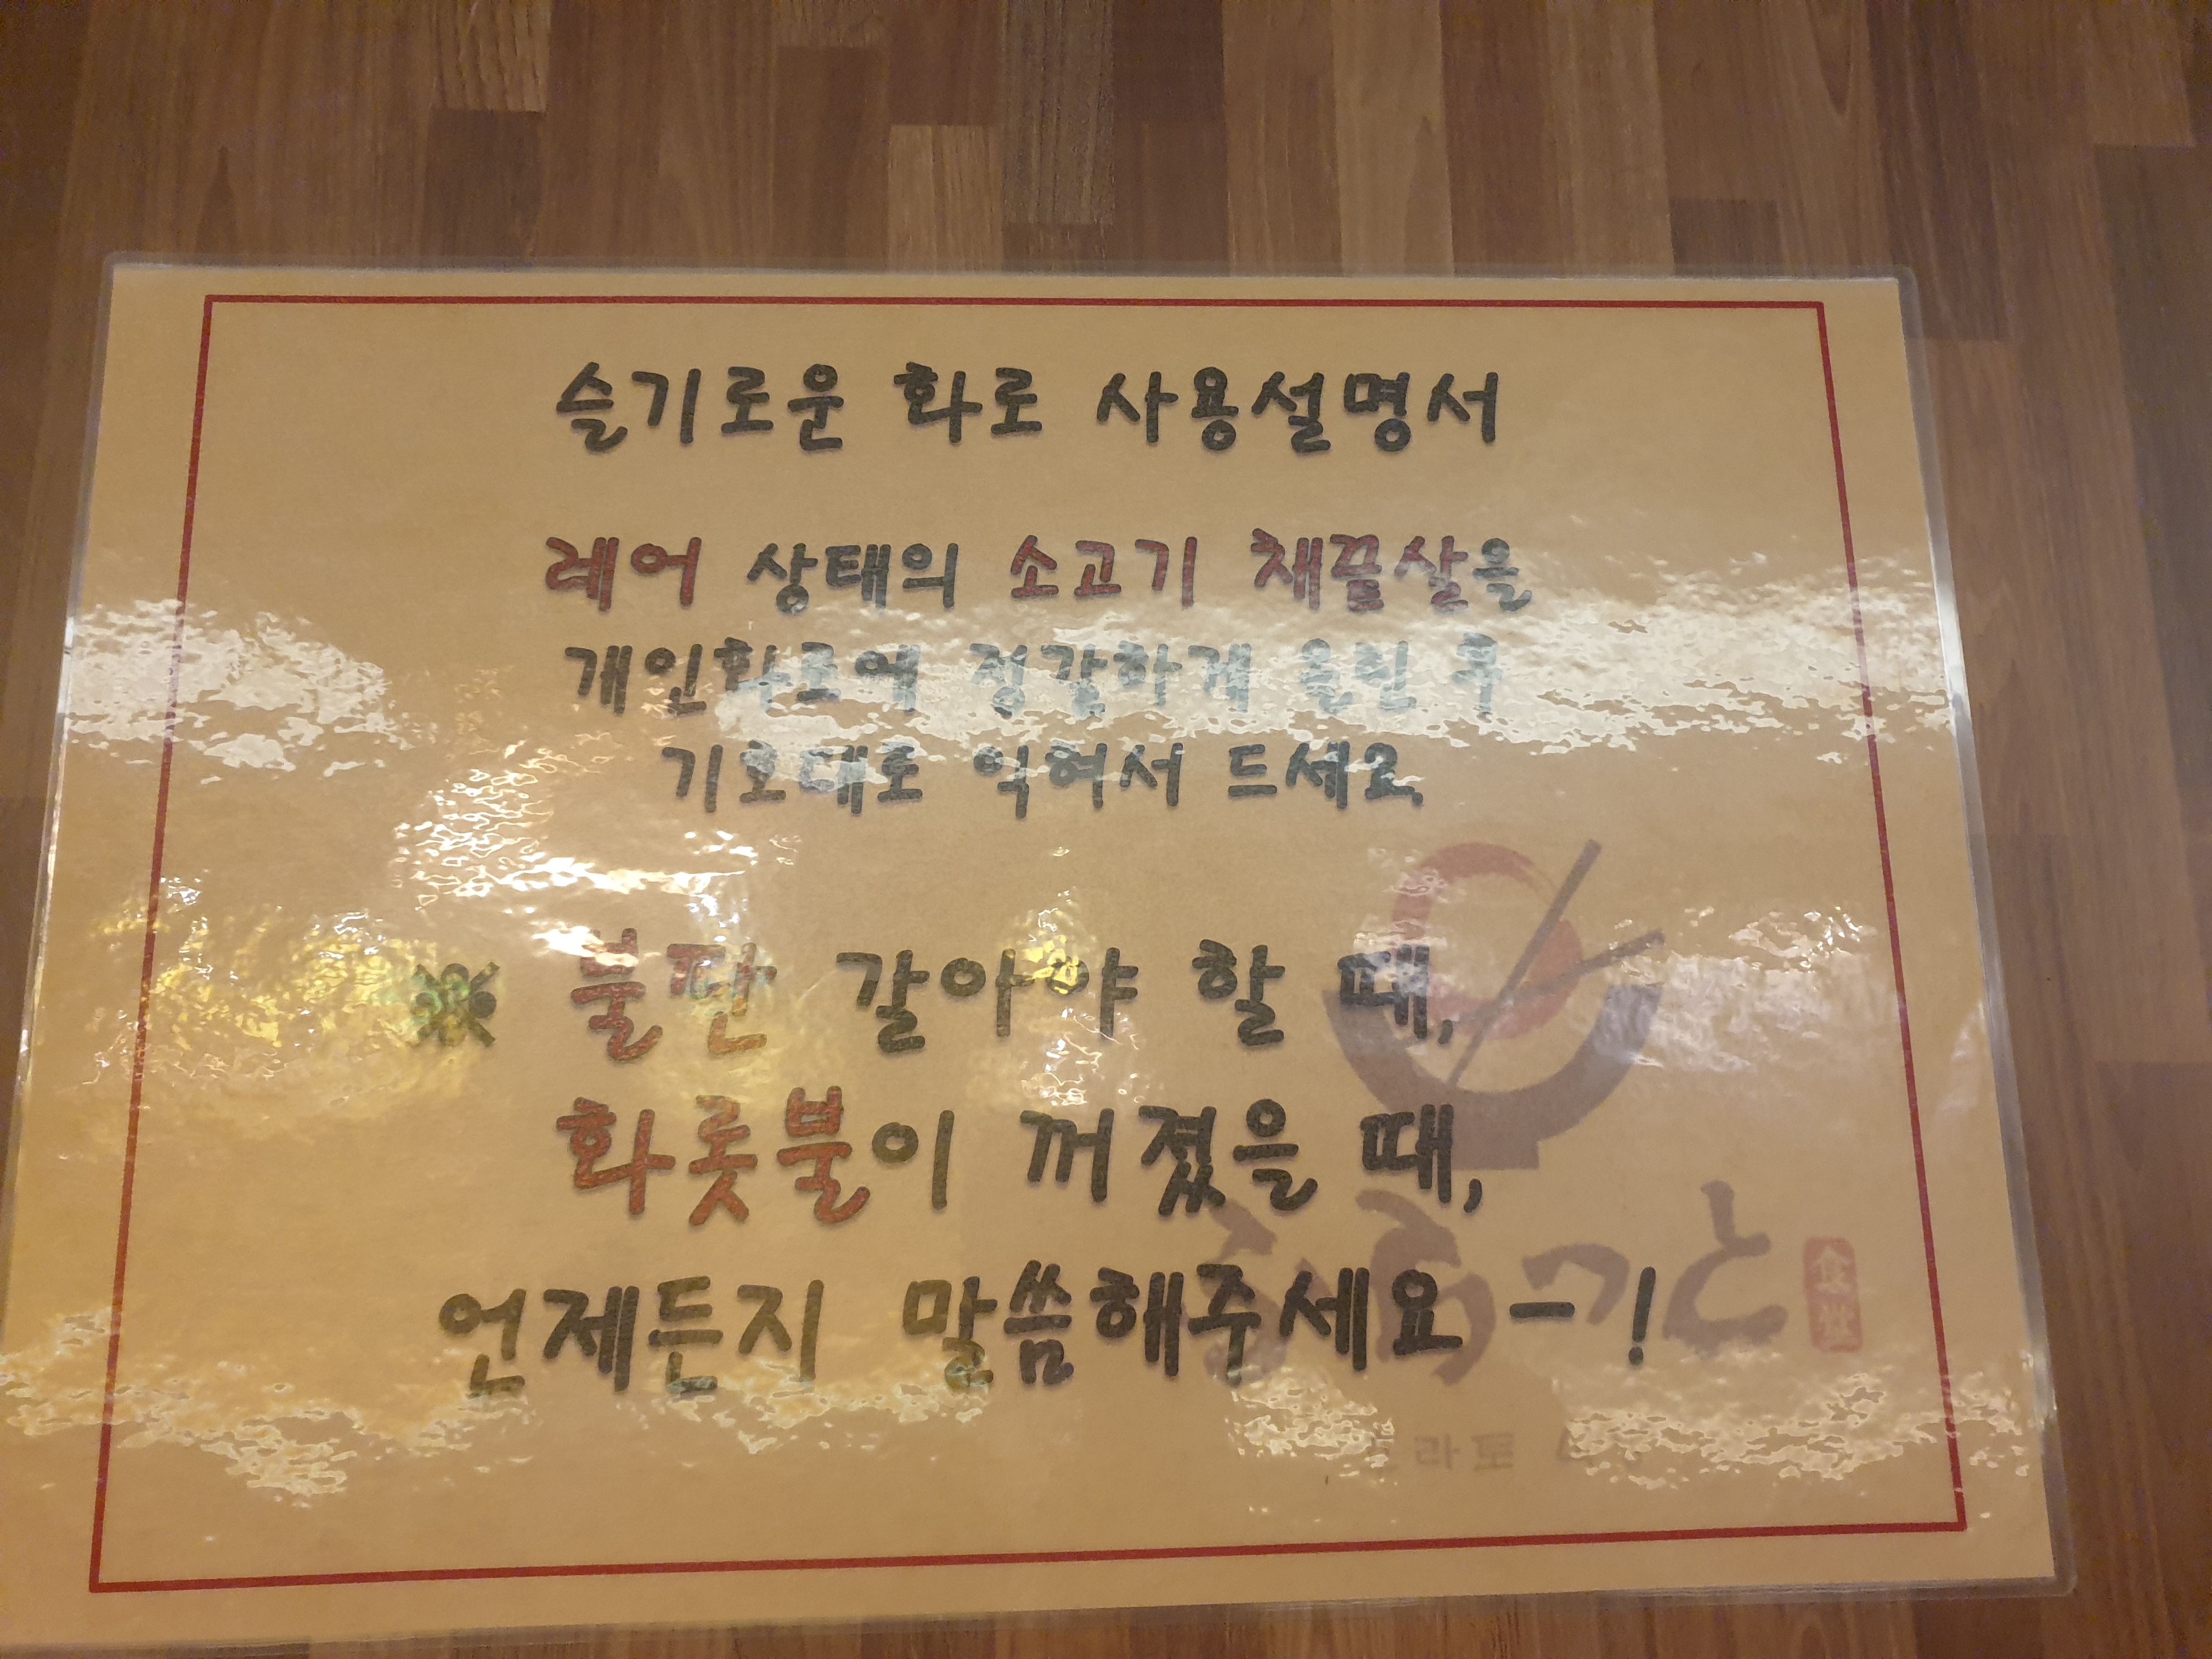 슬기로운 화로 사용설명서
레어 상태의 소고기 채끝살을
개인화로에 정갈하게 올린 후
기호대로 익혀서 드세요
※ 불판 갈아야 할 때,
화롯불이 꺼졌을 때,
언제든지 말씀해주세요 - !